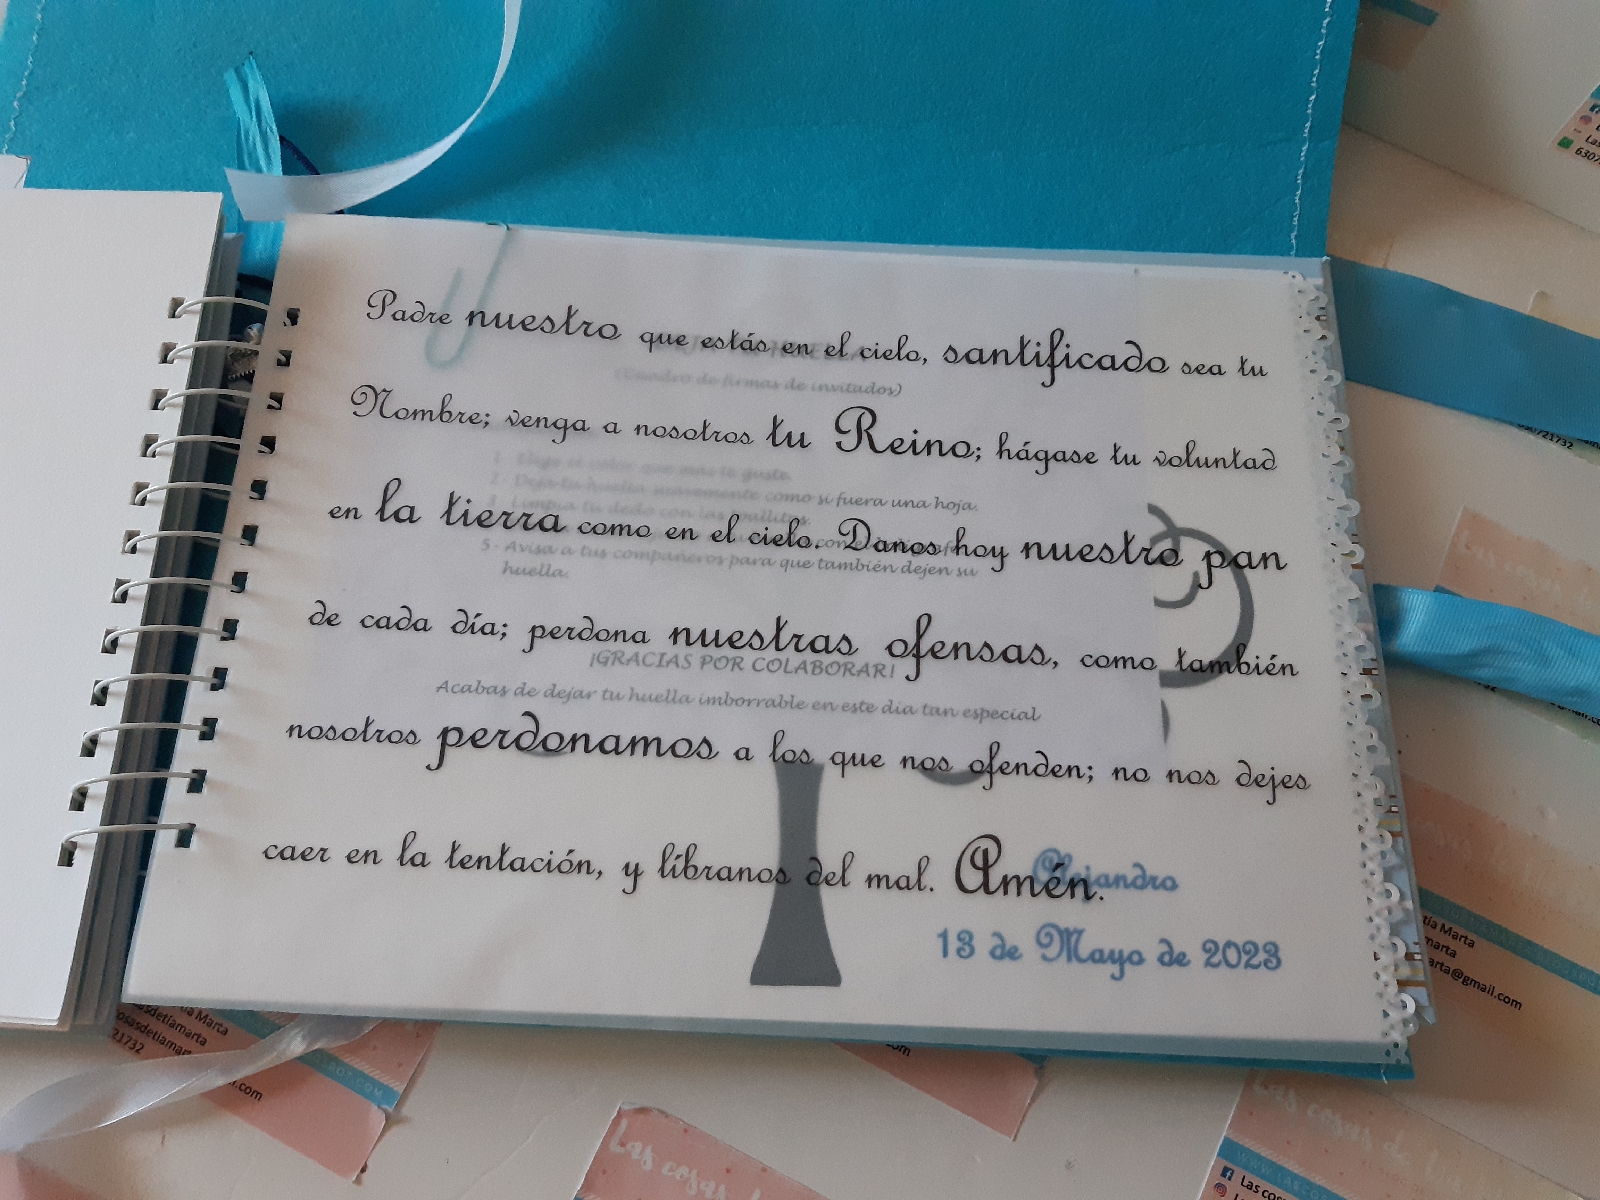 Padre nuestro que estás en el cielo, santificado sea tu
(Cuadro de firmas de invitados)
Nombre; venga a nosotros tu Reino; hágase tu voluntad
1- Elige el color que más te guste.
2- Deja tu huella suavemente como si fuera una hoja.
3- Limpia tu dedo con las toallitas.
en la tierra como en el cielo. Danos hoy nuestro pan
5- Avisa a tus compañeros para que también dejen su
huella.
de cada día; perdona nuestras ofensas, como también
¡GRACIAS POR COLABORAR!
Acabas de dejar tu huella imborrable en este día tan especial
nosotros perdonamos a los que nos ofenden; no nos dejes
caer en la tentación, y líbranos del mal. Amén.
Alejandro
13 de Mayo de 2023
tía Marta
marta
arta@gmail.com
tía Marta
osasdetiamarta
21732
.com
om
Las cosas
Las cosas de
Las cos